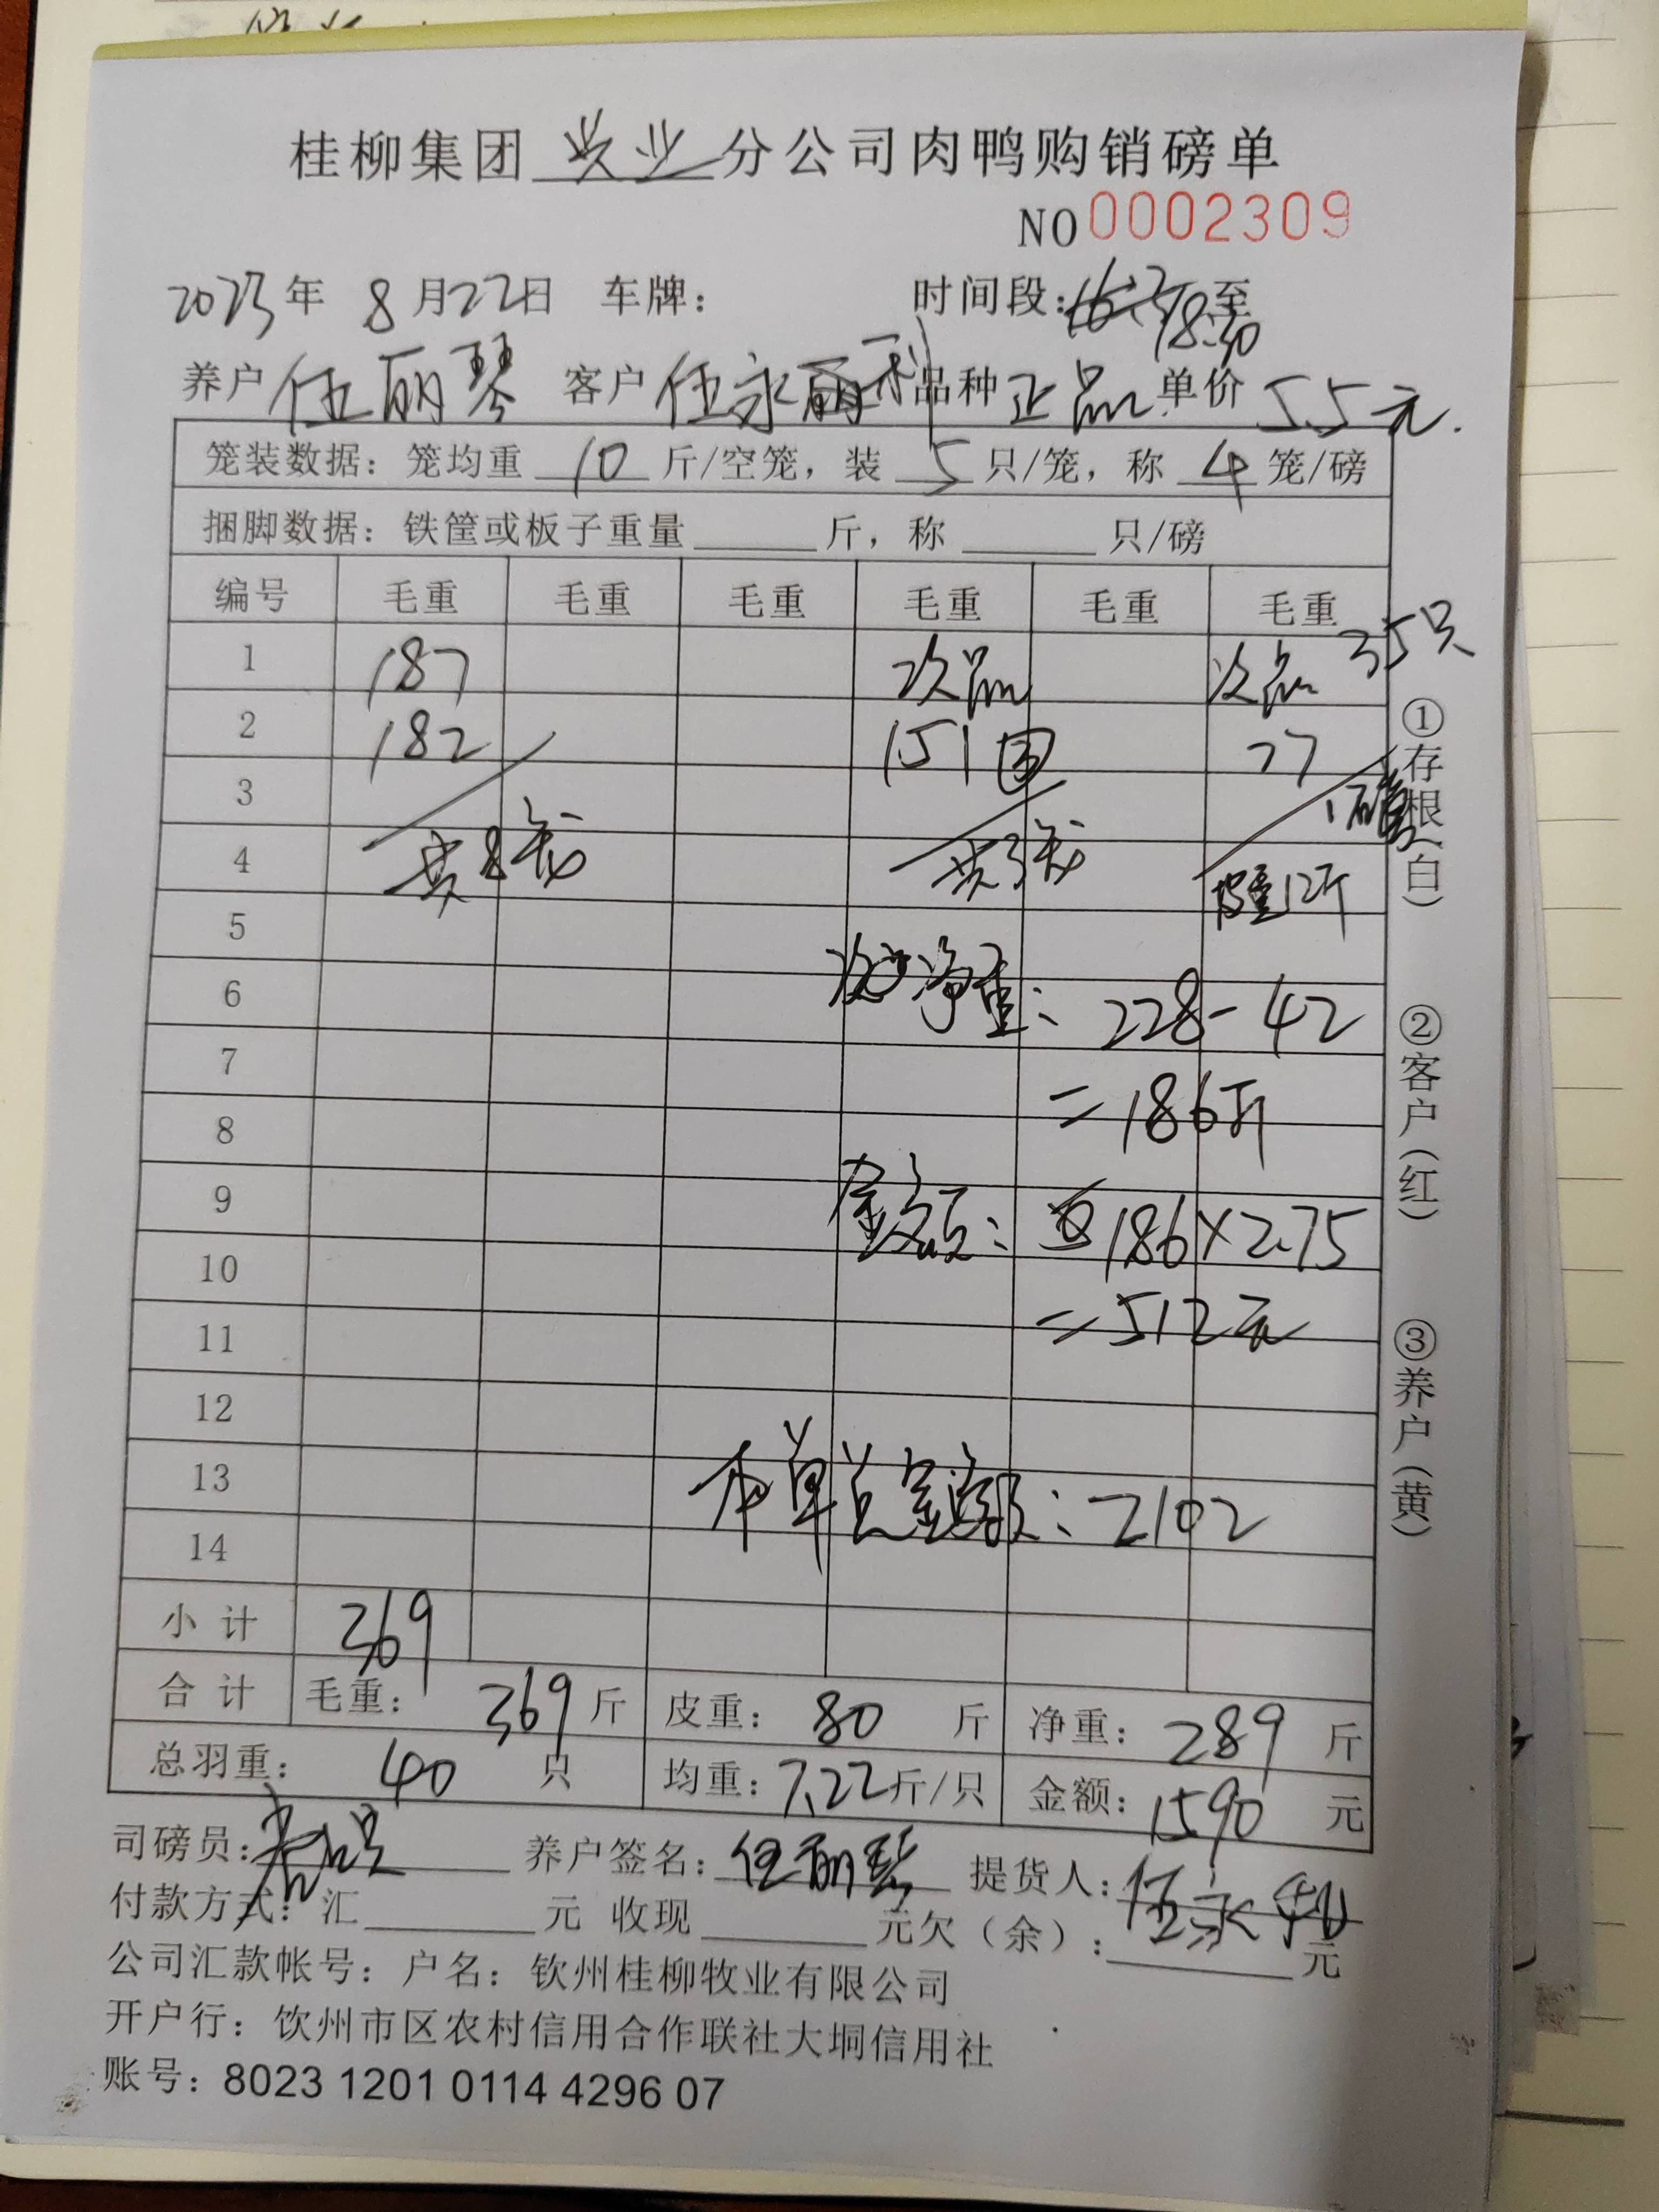 桂柳集团 牧业 分公司肉鸭购销磅单
NO 0002309
2023年 8月22日 车牌： 时间段： 至
18:30
养户 伍丽琴 客户 伍永利 品种 正品 单价 5.5元.
笼装数据：笼均重 10 斤/空笼，装 5 只/笼，称 4 笼/磅
捆脚数据：铁筐或板子重量 斤，称 只/磅
编号 毛重 毛重 毛重 毛重 毛重 毛重
35只
1 187 次品 次品
2 182 151 77
3
4 共8笼 共3笼 皮重12斤
5
6 次品净重：228-42
7
=186斤
8
9 金额：186×2.75
10
11 =512元
12
13 本单总金额：2102
14
小计 369
合计 毛重：369斤 皮重：80 斤 净重：289 斤
总羽重：40 只 均重：7.22斤/只 金额：1590 元
司磅员： 养户签名：伍丽琴 提货人：伍永利
付款方式：汇 元 收现 元欠（余）： 元
公司汇款帐号：户名：钦州桂柳牧业有限公司
开户行：饮州市区农村信用合作联社大垌信用社
账号：8023 1201 0114 4296 07
①存根（白）
②客户（红）
③养户（黄）